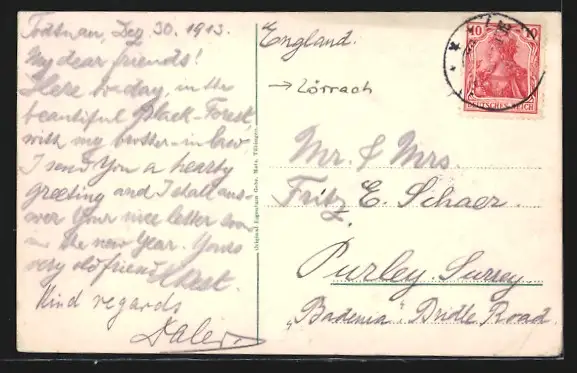 Todtnau, Dez. 30. 1913.
My dear friends!
Here to day, in the
beautiful Black-Forest,
with my brother-in law,
I send You a hearty
greeting and I shall ans-
wer Your nice letter
in the new Year. Yours
very old friend
Kind regards
England.
→ Lörrach
Mr. & Mrs.
Fritz E. Schaer.
Purley. Surrey.
"Badenia" Bridle Road.
10 10
DEUTSCHES REICH
Original Eigentum Gebr. Metz, Tübingen.